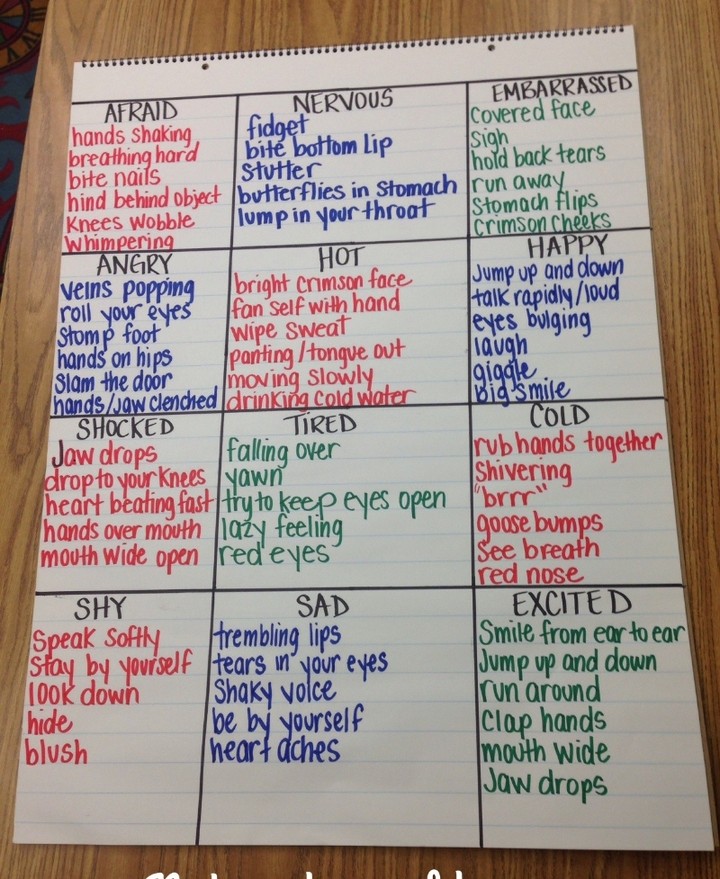 AFRAID
hands shaking
breathing hard
bite nails
hind behind object
Knees wobble
whimpering
NERVOUS
fidget
bite bottom lip
Stutter
butterflies in stomach
lump in your throat
EMBARRASSED
covered face
Sigh
hold back tears
run away
Stomach flips
crimson cheeks
ANGRY
veins popping
roll your eyes
Stomp foot
hands on hips
Slam the door
hands/jaw clenched
HOT
bright crimson face
fan self with hand
wipe sweat
panting/tongue out
moving slowly
drinking cold water
HAPPY
Jump up and down
talk rapidly/loud
eyes bulging
laugh
giggle
big smile
SHOCKED
Jaw drops
drop to your knees
heart beating fast
hands over mouth
mouth wide open
TIRED
falling over
yawn
try to keep eyes open
lazy feeling
red eyes
COLD
rub hands together
Shivering
"brrr"
goose bumps
See breath
red nose
SHY
Speak softly
Stay by yourself
look down
hide
blush
SAD
trembling lips
tears in your eyes
Shaky voice
be by yourself
heart aches
EXCITED
Smile from ear to ear
Jump up and down
run around
clap hands
mouth wide
Jaw drops